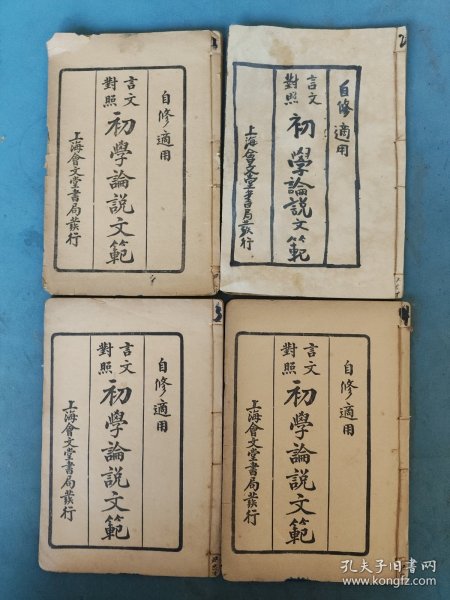 自修適用
言文對照
初學論說文範
上海會文堂書局發行
2
自修適用
言文對照
初學論說文範
上海會文堂書局發行
3
自修適用
言文對照
初學論說文範
上海會文堂書局發行
自修適用
言文對照
初學論說文範
上海會文堂書局發行
孔夫子旧书网
www.kongfz.com